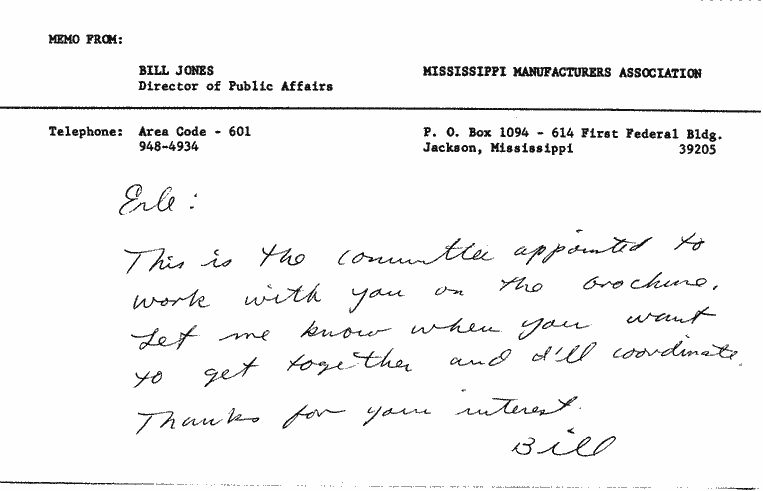 MEMO FROM:
BILL JONES MISSISSIPPI MANUFACTURERS ASSOCIATION
Director of Public Affairs
Telephone: Area Code - 601 P. O. Box 1094 - 614 First Federal Bldg.
948-4934 Jackson, Mississippi 39205
Erle:
This is the committee appointed to
work with you on the brochure.
Let me know when you want
to get together and I'll coordinate.
Thanks for your interest.
Bill